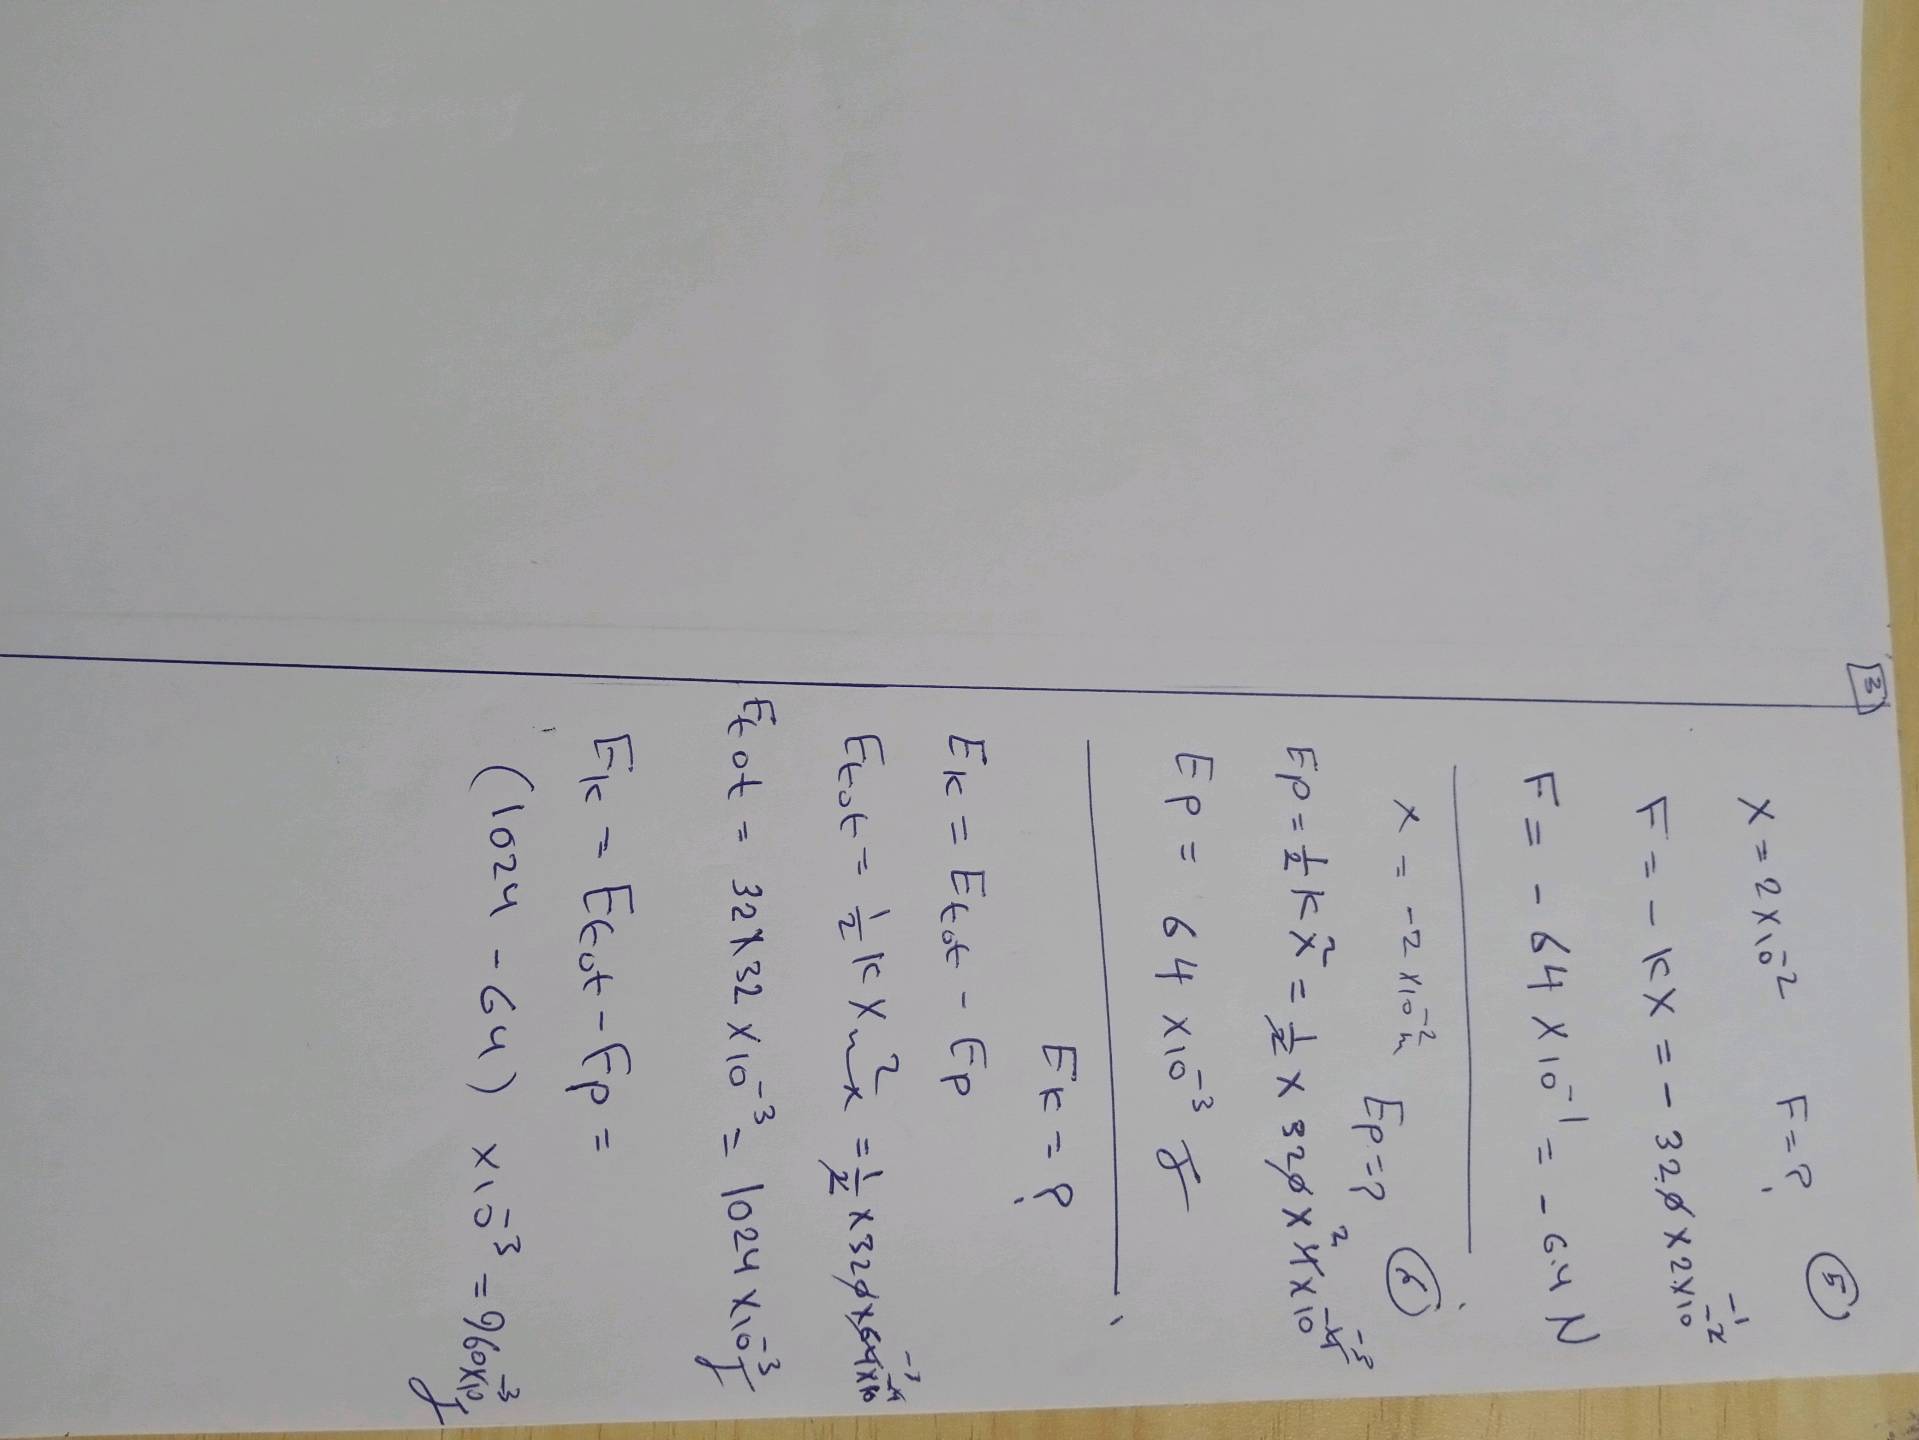 3
x = 2×10⁻² F = ? 5
F = -kx = -320×2×10⁻² ⁻¹
F = -64×10⁻¹ = -6.4 N
x = -2×10⁻² m Ep = ? 6
Ep = ½kx² = ½×320×4×10⁻⁴ 2 ⁻³
Ep = 64×10⁻³ J
Ek = ?
Ek = Etot - Ep
Etot = ½kXm²x = ½×320×64×10⁻⁴ ⁻³
Etot = 32×32×10⁻³ = 1024×10⁻³ J
Ek = Etot - Ep =
(1024 - 64) ×10⁻³ = 960×10⁻³ J